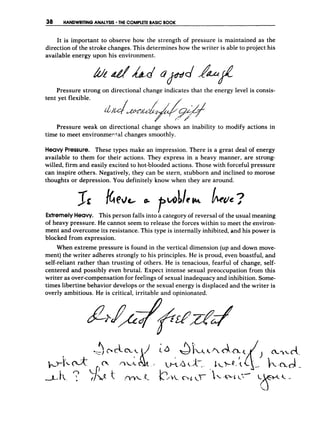 38 HANDWRITING ANALYSIS - THE COMPLETE BASIC BOOK
It is important to observe how the strength of pressure is maintained as the
direction of the stroke changes. This determines how the writer is able to project his
available energy upon his environment.
We all had a good laugh
Pressure strong on directional change indicates that the energy level is consis-
tent yet flexible.
and wonderful gift
Pressure weak on directional change shows an inability to modify actions in
time to meet environmental changes smoothly.
Heavy Pressure. These types make an impression. There is a great deal of energy
available to them for their actions. They express in a heavy manner, are strong-
willed, firm and easily incited to hot-blooded actions. Those with forceful pressure
can inspire others. Negatively, they can be stern, stubborn and inclined to morose
thoughts or depression. You definitely know when they are around.
Is there a problem here?
Extremely Heavy. This person falls into a category of reversal of the usual meaning
of heavy pressure. He cannot seem to release the forces within to meet the environ-
ment and overcome its resistance. This type is internally inhibited, and his power is
blocked from expression.
When extreme pressure is found in the vertical dimension (up and down move-
ment) the writer adheres strongly to his principles. He is proud, even boastful, and
self-reliant rather than trusting of others. He is tenacious, fearful of change, self-
centered and possibly even brutal. Expect intense sexual preoccupation from this
writer as over-compensation for feelings of sexual inadequacy and inhibition. Some-
times libertine behavior develops or the sexual energy is displaced and the writer is
overly ambitious. He is critical, irritable and opinionated.
Did not feel that
Today is Thursday, and
what a nice visit we had.
? Let me know how you